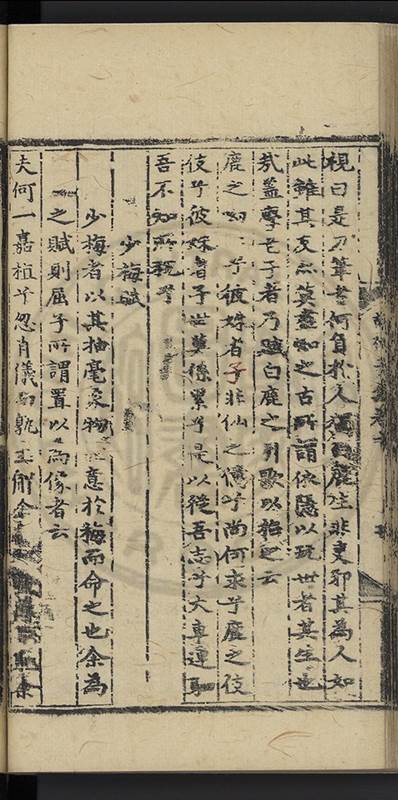 視曰是刀筆吏何負於人獨白鹿生非吏邪其為人如
此雖其友亦莫盡知之古所謂依隱以玩世者其生也
哉蓋學老子者乃賦白鹿之引歌以招之云
鹿之 兮彼姝者子非仙之儔兮尚何求兮鹿之伎
伎兮彼姝者子世莫係累兮是以從吾志兮大車連駟
吾不知所稅兮
少梅賦
少梅者以其抽毫象物 意於梅而命之也余為
之賦則屈子所謂置以為像者云
夫何一嘉植兮忽肖儀而